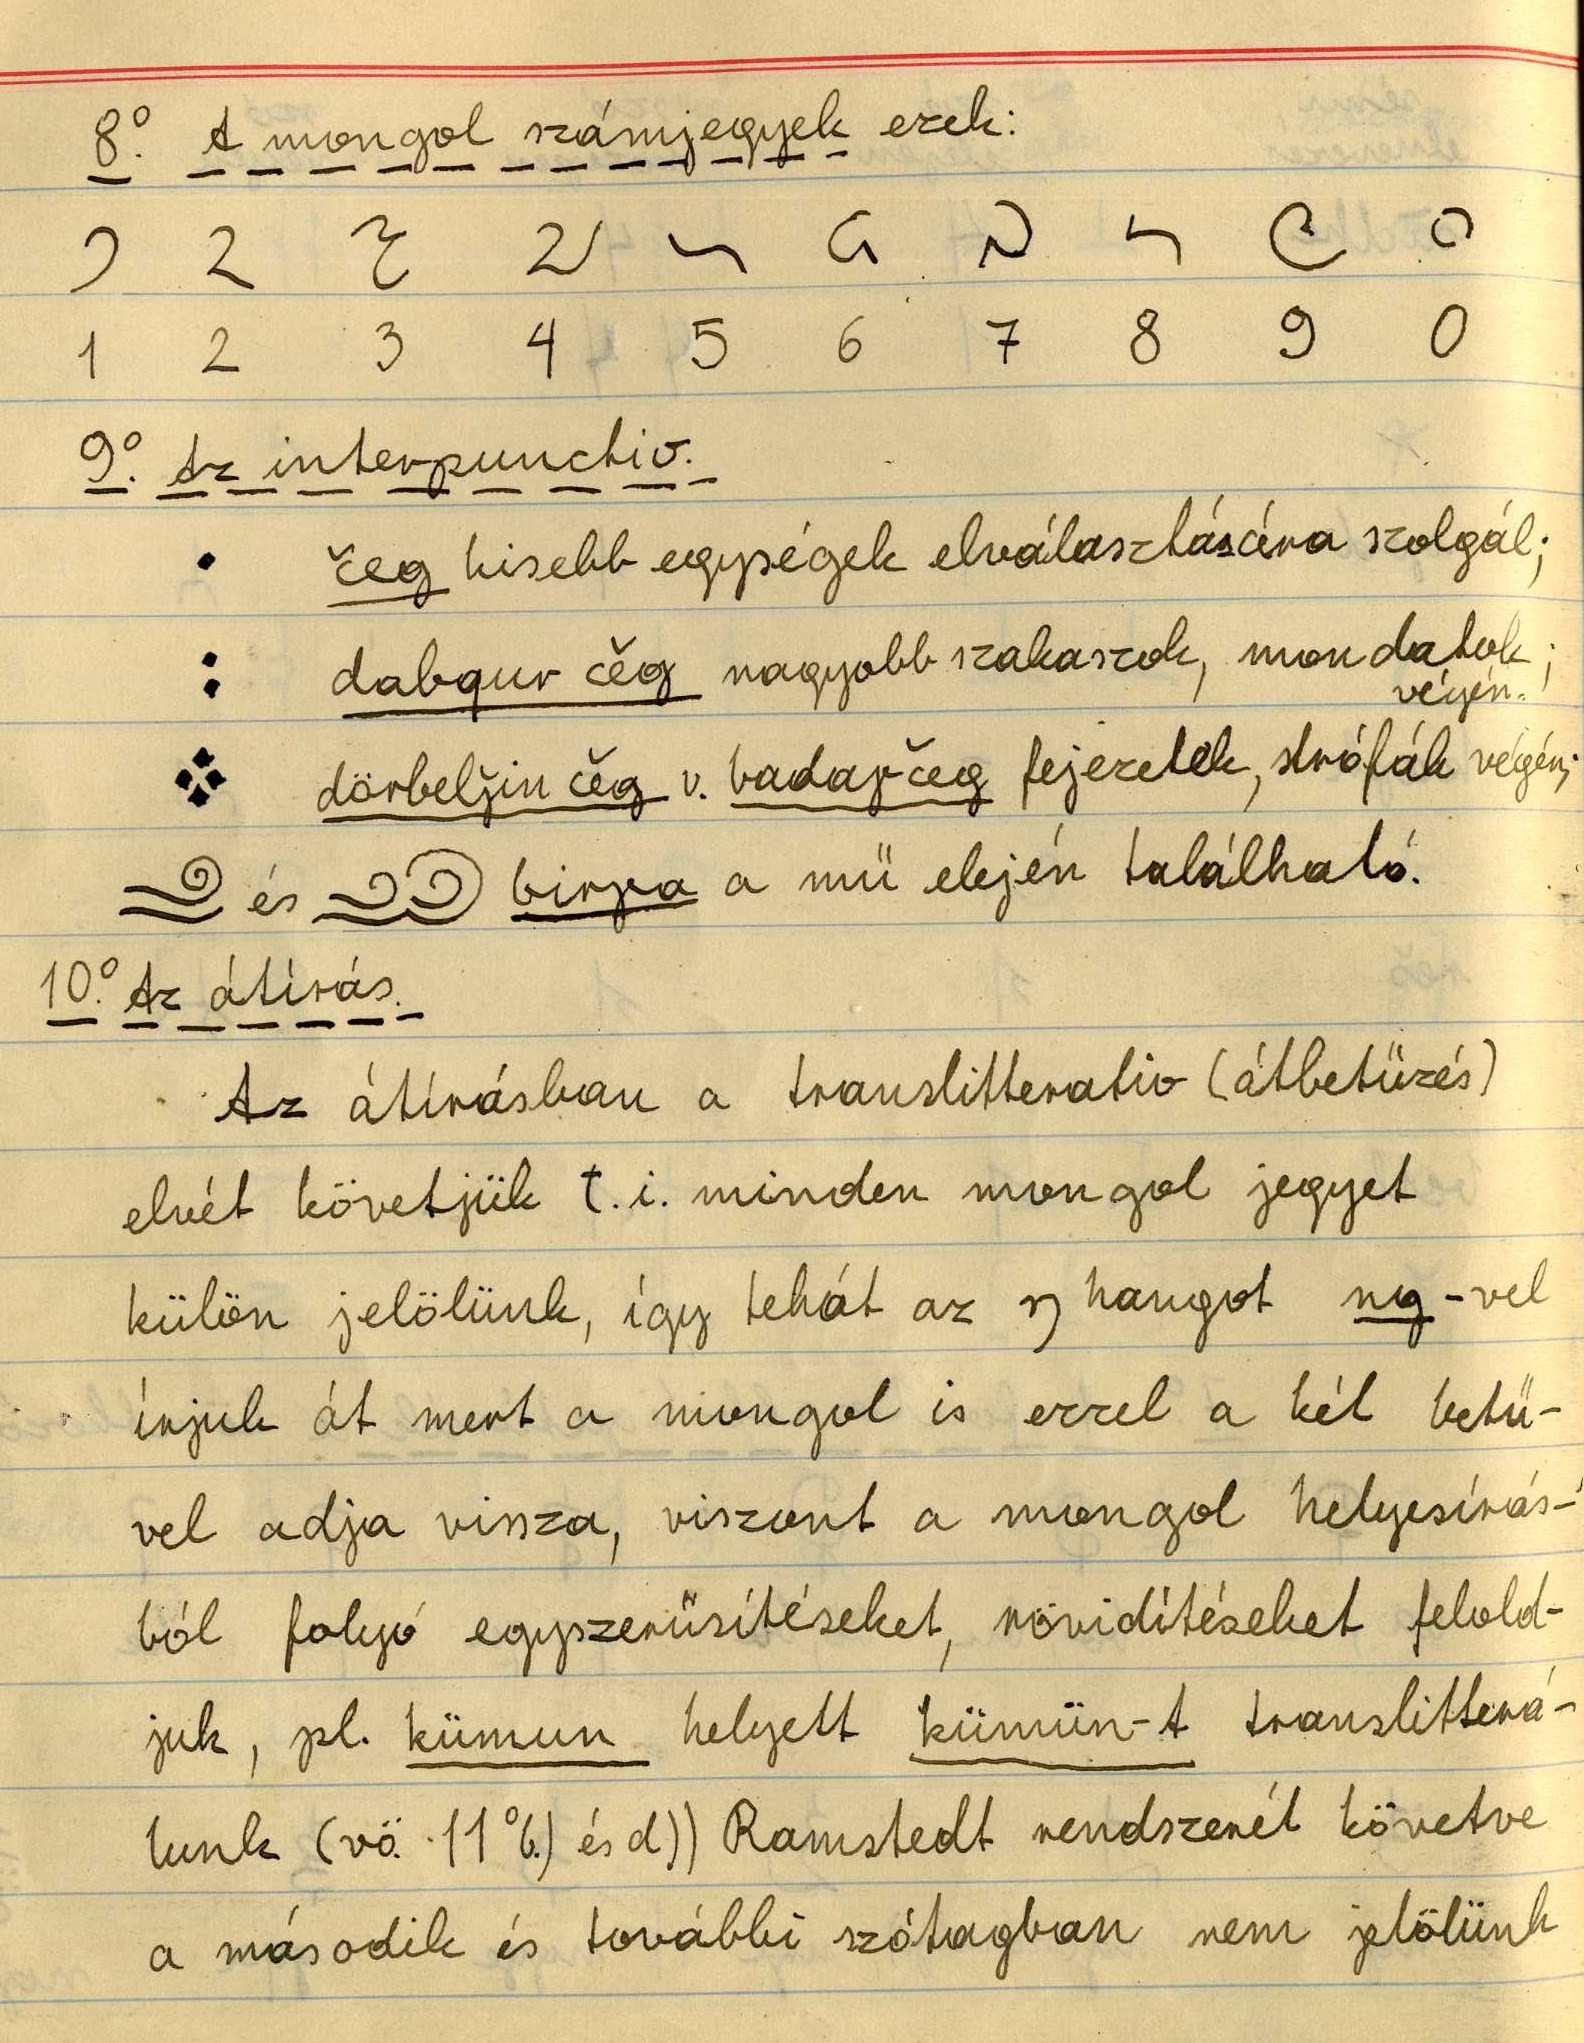 8.° A mongol számjegyek ezek:
᠑ ᠒ ᠓ ᠔ ᠕ ᠖ ᠗ ᠘ ᠙ ᠐
1 2 3 4 5 6 7 8 9 0
9.° Az interpunctio.
• čeg kisebb egységek elválasztására szolgál;
: dabqur čeg nagyobb szakaszok, mondatok végén;
᠅ dörbelǰin čeg v. badaγ čeg fejezetek, strófák végén;
és birγa a mű elején található.
10.° Az átírás.
Az átírásban a translitteratio (átbetűzés)
elvét követjük t.i. minden mongol jegyet
külön jelölünk, így tehát az ŋ hangot ng-vel
írjuk át mert a mongol is ezzel a két betű-
vel adja vissza, viszont a mongol helyesírás-
ból folyó egyszerűsítéseket, rövidítéseket felold-
juk, pl. kümun helyett kümün-t translitterá-
lunk (vö. 11° b) és d)) Ramstedt rendszerét követve
a második és további szótagban nem jelölünk